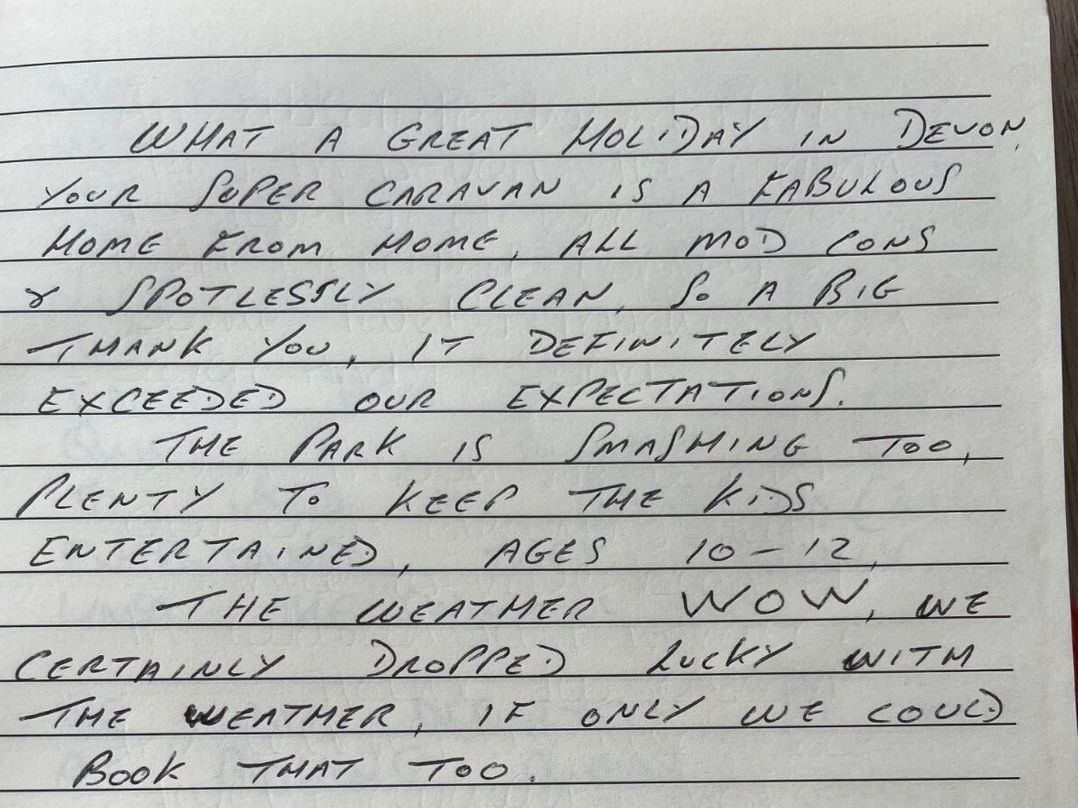 WHAT A GREAT HOLIDAY IN DEVON,
YOUR SUPER CARAVAN IS A FABULOUS
HOME FROM HOME, ALL MOD CONS
& SPOTLESSLY CLEAN, SO A BIG
THANK YOU, IT DEFINITELY
EXCEEDED OUR EXPECTATIONS.
THE PARK IS SMASHING TOO,
PLENTY TO KEEP THE KIDS
ENTERTAINED, AGES 10-12,
THE WEATHER WOW, WE
CERTAINLY DROPPED LUCKY WITH
THE WEATHER, IF ONLY WE COULD
BOOK THAT TOO.